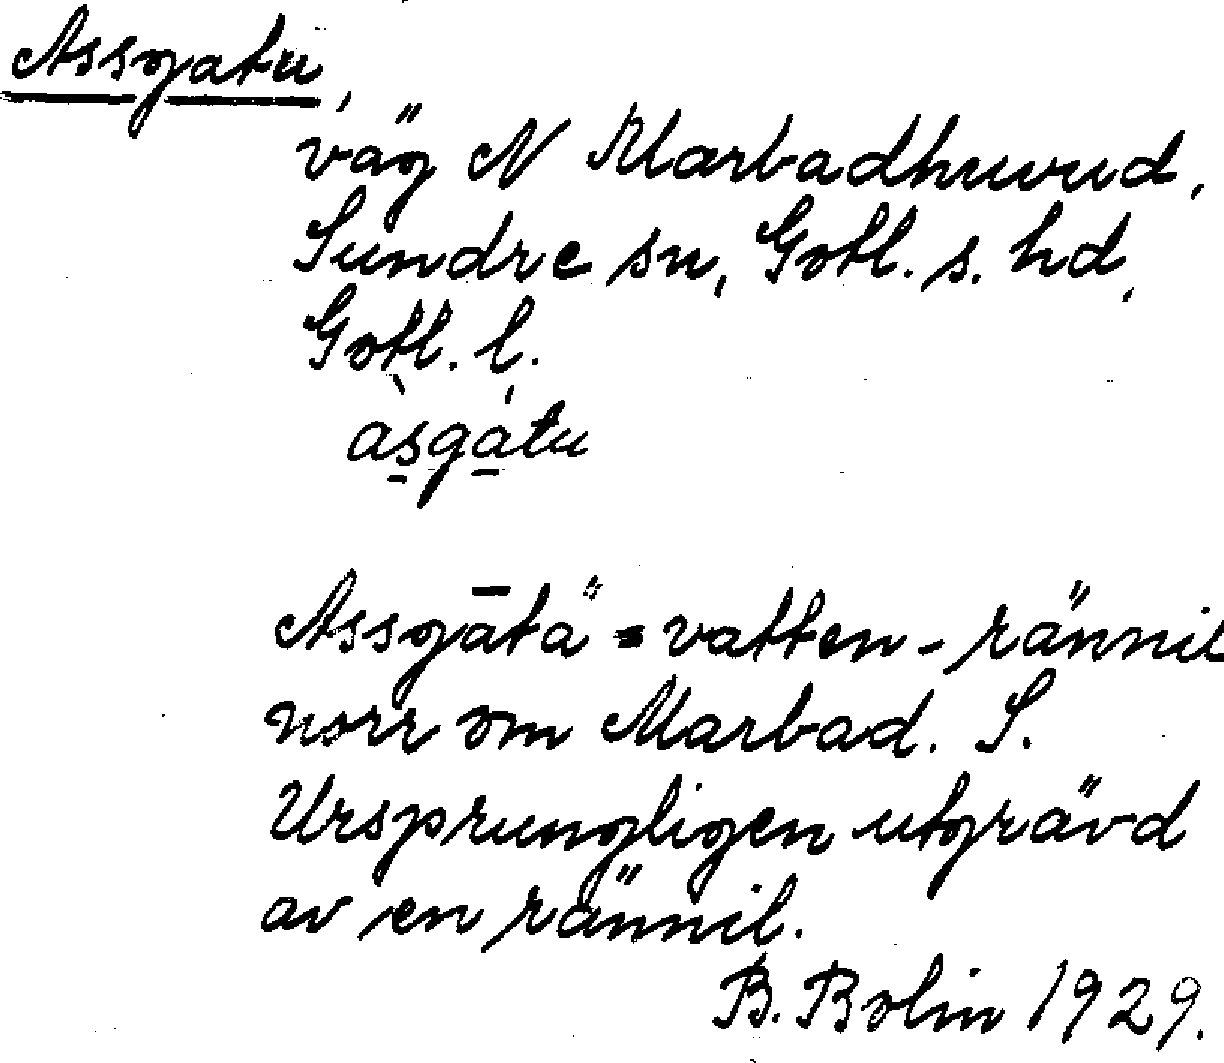 Assgatu,
väg N Marbadhuvud,
Sundre sn, Gotl. s. hd,
Gotl. l.
às̱ga̱̍tu
Assgātä = vatten-rännil
norr om Marbad. S.
Ursprungligen utgrävd
av en rännil.
B. Bolin 1929.